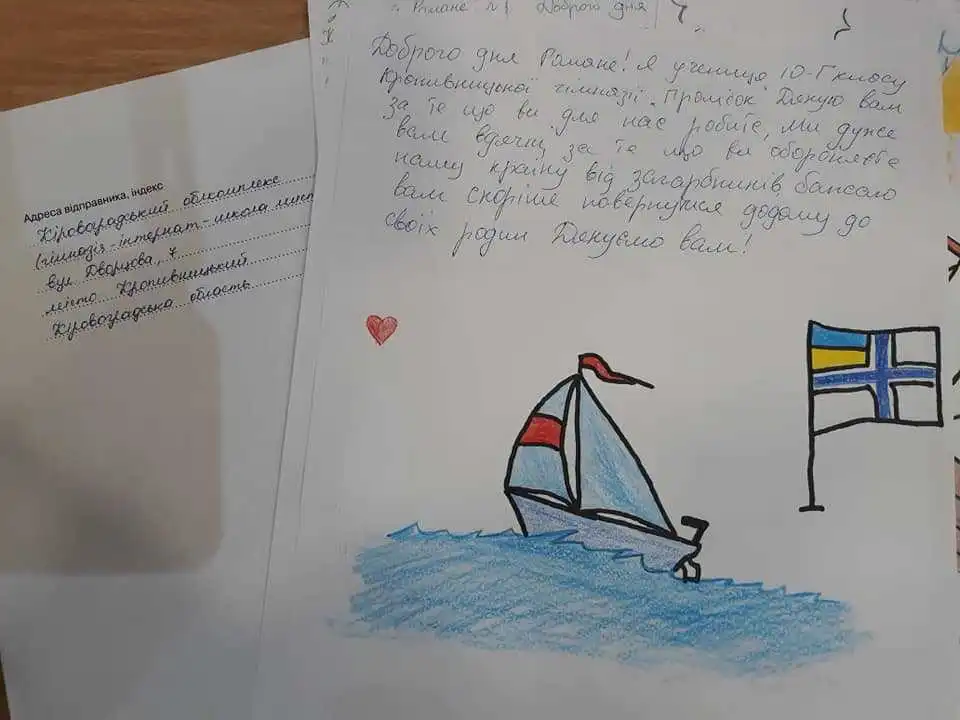 Романе Доброго дня
Доброго дня Романе! Я учениця 10-Г класу
Кропивницької гімназії. Пролісок Дякую вам
за те що ви для нас робите, ми дуже
вам вдячні за те що ви обороняєте
нашу країну від загарбників бажаю
вам скоріше повернутися додому до
своїх родин Дякуємо вам!
Адреса відправника, індекс
Кіровоградський обл
(гімназія-інтернат-школа
вул Дворцова, 7
місто Кропивницький
Кіровоградська область